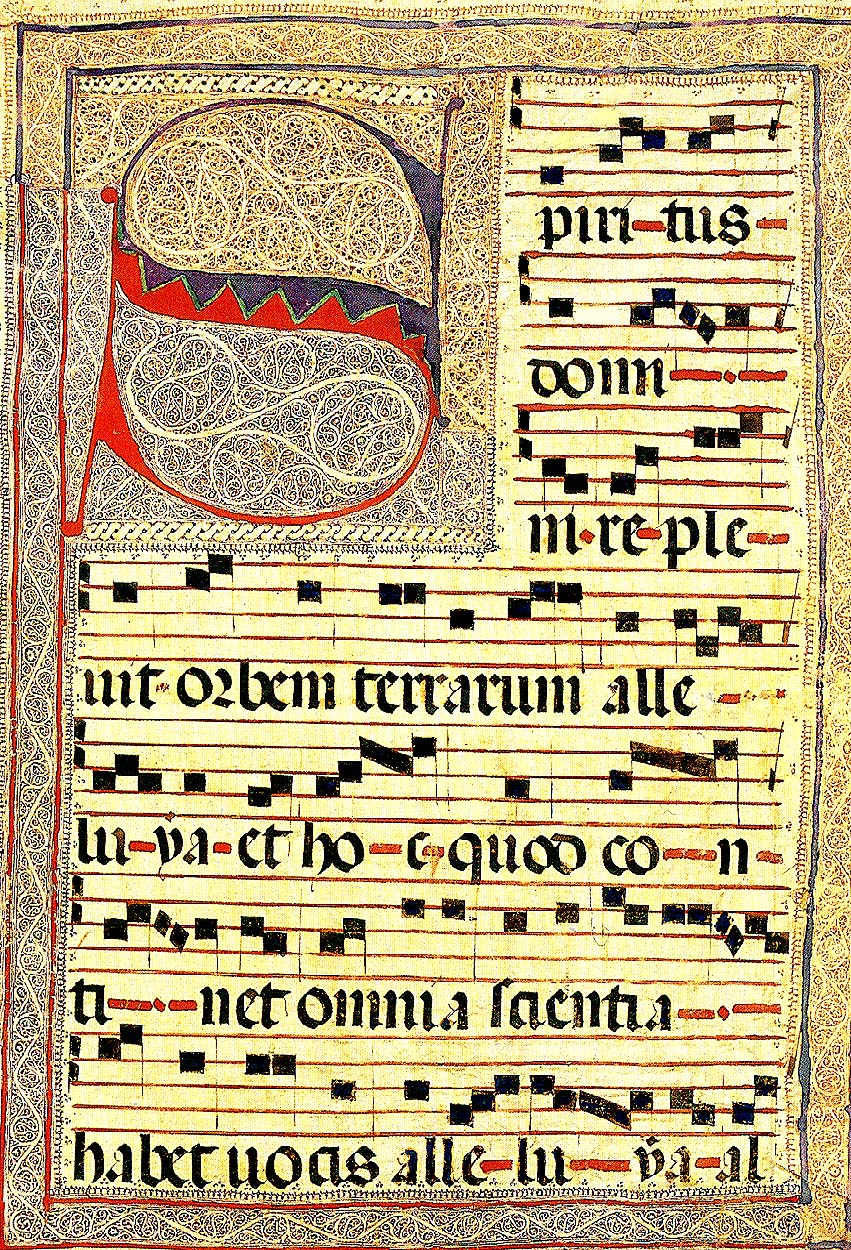 Spiri-tus-
domi-·-
ni·re-ple-
uit orbem terrarum alle-
lu-ya-et ho-c·quod co-n-
ti-·-net omnia scientia-·-
habet uocis alle-lu-ya-al